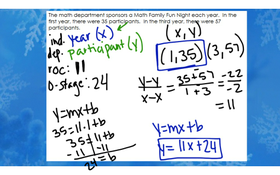 The math department sponsors a Math Family Fun Night each year. In the
first year, there were 35 participants. In the third year, there were 57
participants.
ind. year (x)
dep. participant (y)
roc: 11
0-stage: 24
y=mx+b
35=11·1+b
35=11+b
-11 -11
24=b
(x, y)
(1,35) (3,57)
y-y/x-x = 35-57/1-3 = -22/-2
= 11
y=mx+b
y=11x+24